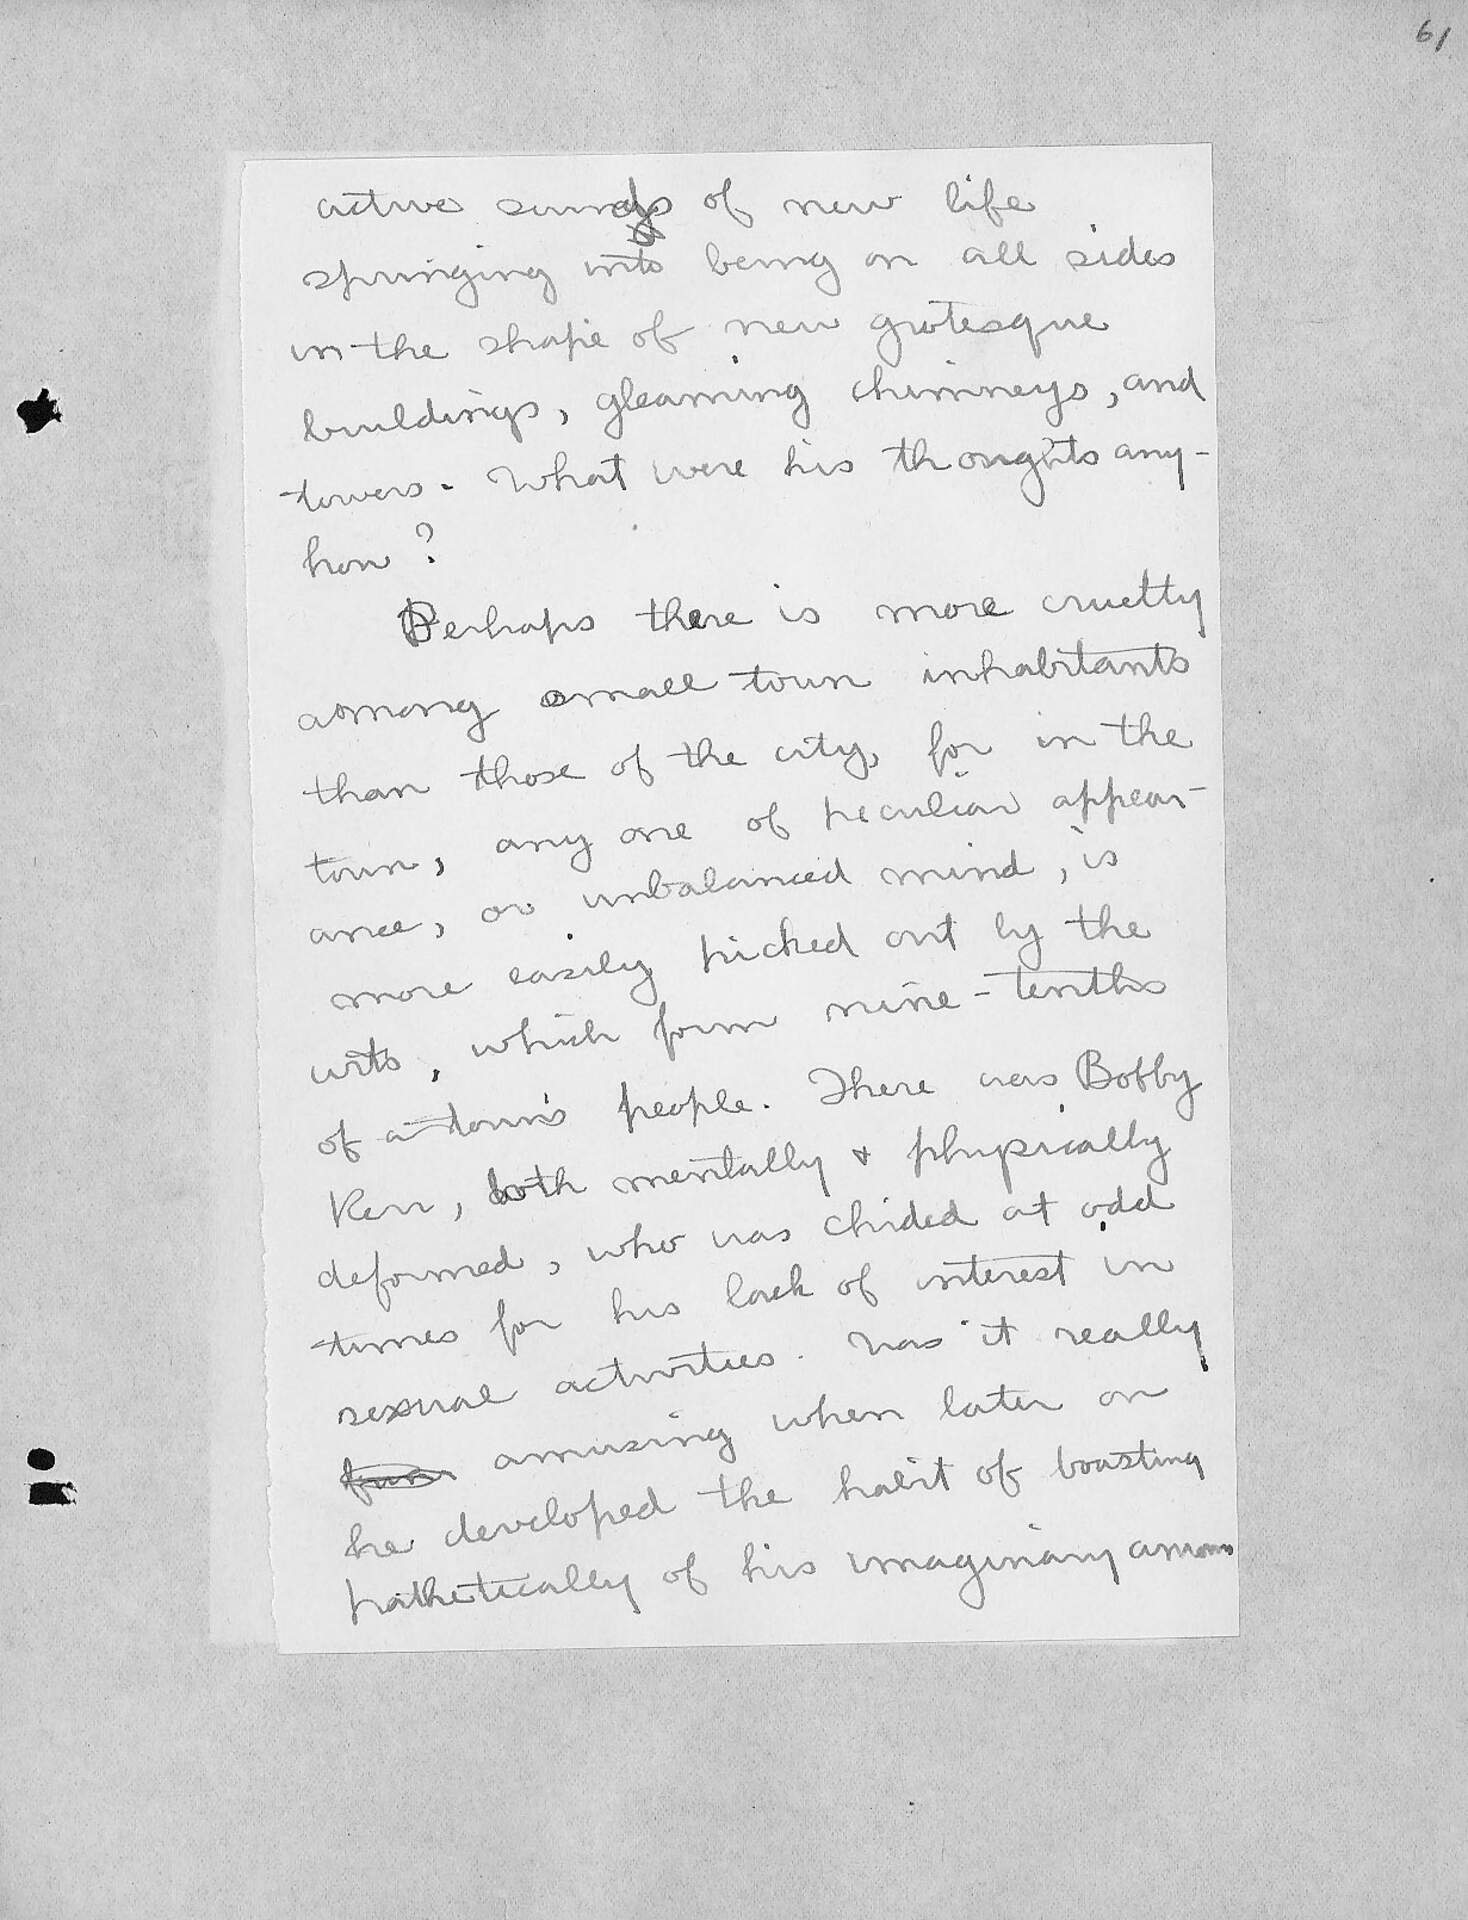 61
active sounds of new life
springing into being on all sides
in the shape of new grotesque
buildings, gleaming chimneys, and
towers. What were his thoughts any-
how?
Perhaps there is more cruelty
among small town inhabitants
than those of the city, for in the
town, any one of peculiar appear-
ance, or unbalanced mind, is
more easily picked out by the
wits, which form nine-tenths
of a town's people. There was Bobby
Kerr, both mentally & physically
deformed, who was chided at odd
times for his lack of interest in
sexual activities. Was it really
fun amusing when later on
he developed the habit of boasting
pathetically of his imaginary amours